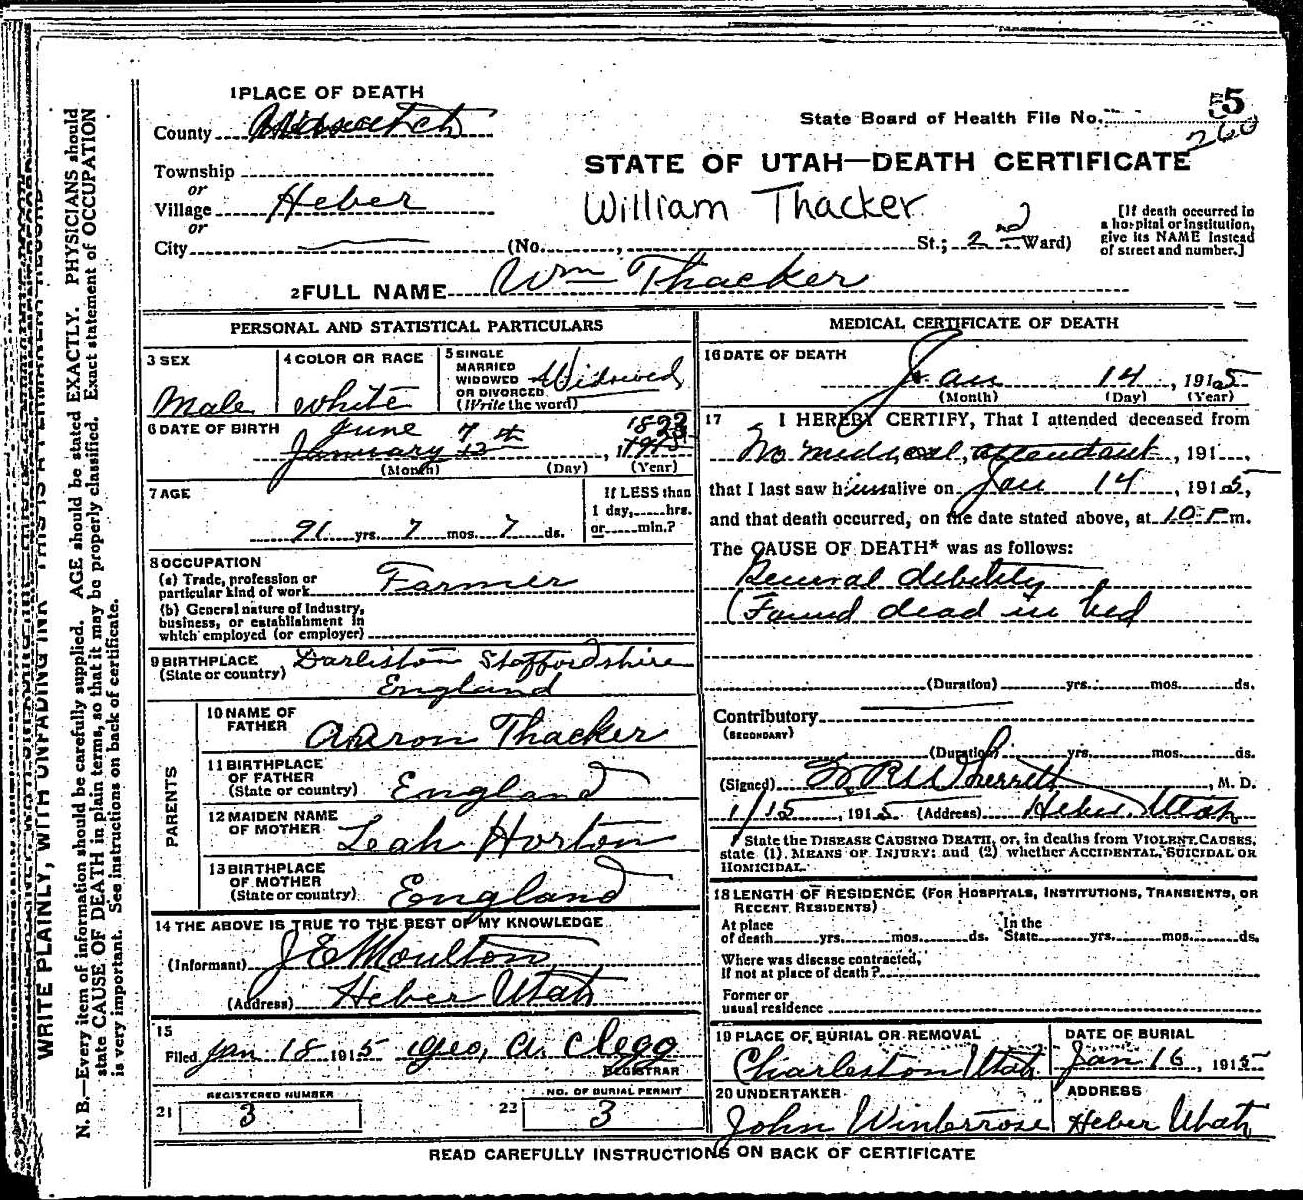 1 PLACE OF DEATH
County Wasatch
Township
or
Village Heber
or
City
State Board of Health File No. 5
260
STATE OF UTAH—DEATH CERTIFICATE
William Thacker
(No. , St.; 2nd Ward)
[If death occurred in a hospital or institution, give its NAME instead of street and number.]
2 FULL NAME Wm Thacker
PERSONAL AND STATISTICAL PARTICULARS
3 SEX
Male
4 COLOR OR RACE
White
5 SINGLE MARRIED WIDOWED OR DIVORCED (Write the word) Widowed
6 DATE OF BIRTH June 7th 1823
January
(Month) (Day) (Year)
7 AGE
91 yrs. 7 mos. 7 ds.
If LESS than 1 day, hrs. or min.?
8 OCCUPATION
(a) Trade, profession or particular kind of work Farmer
(b) General nature of Industry, business, or establishment in which employed (or employer)
9 BIRTHPLACE (State or country) Darliston Staffordshire
England
PARENTS
10 NAME OF FATHER Aaron Thacker
11 BIRTHPLACE OF FATHER (State or country) England
12 MAIDEN NAME OF MOTHER Leah Horton
13 BIRTHPLACE OF MOTHER (State or country) England
14 THE ABOVE IS TRUE TO THE BEST OF MY KNOWLEDGE
(Informant) J E Moulton
(Address) Heber Utah
15
Filed Jan 18 1915 Geo. A. Clegg
REGISTRAR
21 REGISTERED NUMBER 3
22 NO. OF BURIAL PERMIT 3
MEDICAL CERTIFICATE OF DEATH
16 DATE OF DEATH
Jan 14, 1915
(Month) (Day) (Year)
17 I HEREBY CERTIFY, That I attended deceased from
No medical attendant, 191 ,
that I last saw him alive on Jan 14, 1915,
and that death occurred, on the date stated above, at 10 P m.
The CAUSE OF DEATH* was as follows:
General debility
(Found dead in bed
(Duration) yrs. mos. ds.
Contributory
(SECONDARY)
(Duration) yrs. mos. ds.
(Signed) W R Wherritt, M. D.
1/15, 1915 (Address) Heber, Utah
State the DISEASE CAUSING DEATH, or, in deaths from VIOLENT CAUSES, state (1) MEANS OF INJURY; and (2) whether ACCIDENTAL, SUICIDAL OR HOMICIDAL.
18 LENGTH OF RESIDENCE (FOR HOSPITALS, INSTITUTIONS, TRANSIENTS, OR RECENT RESIDENTS)
At place of death yrs. mos. ds. In the State yrs. mos. ds.
Where was disease contracted, If not at place of death?
Former or usual residence
19 PLACE OF BURIAL OR REMOVAL
Charleston Utah
DATE OF BURIAL
Jan 16, 1915
20 UNDERTAKER
John Winterrose
ADDRESS
Heber Utah
READ CAREFULLY INSTRUCTIONS ON BACK OF CERTIFICATE
WRITE PLAINLY, WITH UNFADING INK—THIS IS A PERMANENT RECORD
N. B.—Every item of information should be carefully supplied. AGE should be stated EXACTLY. PHYSICIANS should
state CAUSE OF DEATH in plain terms, so that it may be properly classified. Exact statement of OCCUPATION
is very important. See instructions on back of certificate.